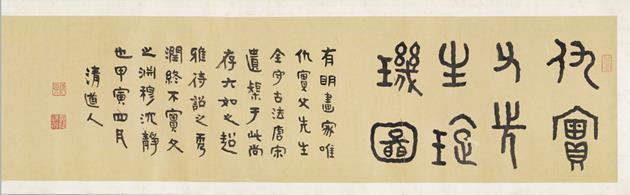 仇實
父先
生璇
璣圖
有明畫家唯
仇實父先生
全守古法唐宋
遺榘于此尚
存六如之超
雅待詔之秀
潤終不實父
之淵穆沈靜
也甲寅四月
清道人